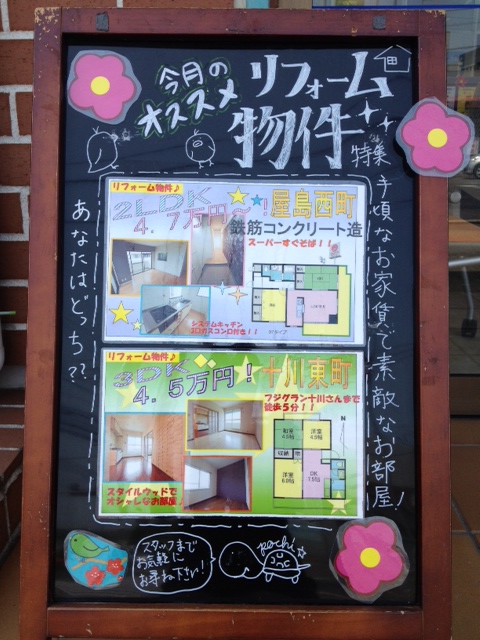 今月の
オススメ
リフォーム
物件
特集
手頃なお家賃で素敵なお部屋!
あなたはどっち??
リフォーム物件♪
2LDK
4.7万円～!
屋島西町
鉄筋コンクリート造
スーパーすぐそば!!
システムキッチン
リフォーム物件♪
3DK
4.5万円!
十川東町
フジグラン十川さんまで
徒歩5分!!
和室
洋室
収納
洋室
DK
スタイルウッドで
オシャレなお部屋!
スタッフまで
お気軽に
お尋ね下さい!
pochi☆